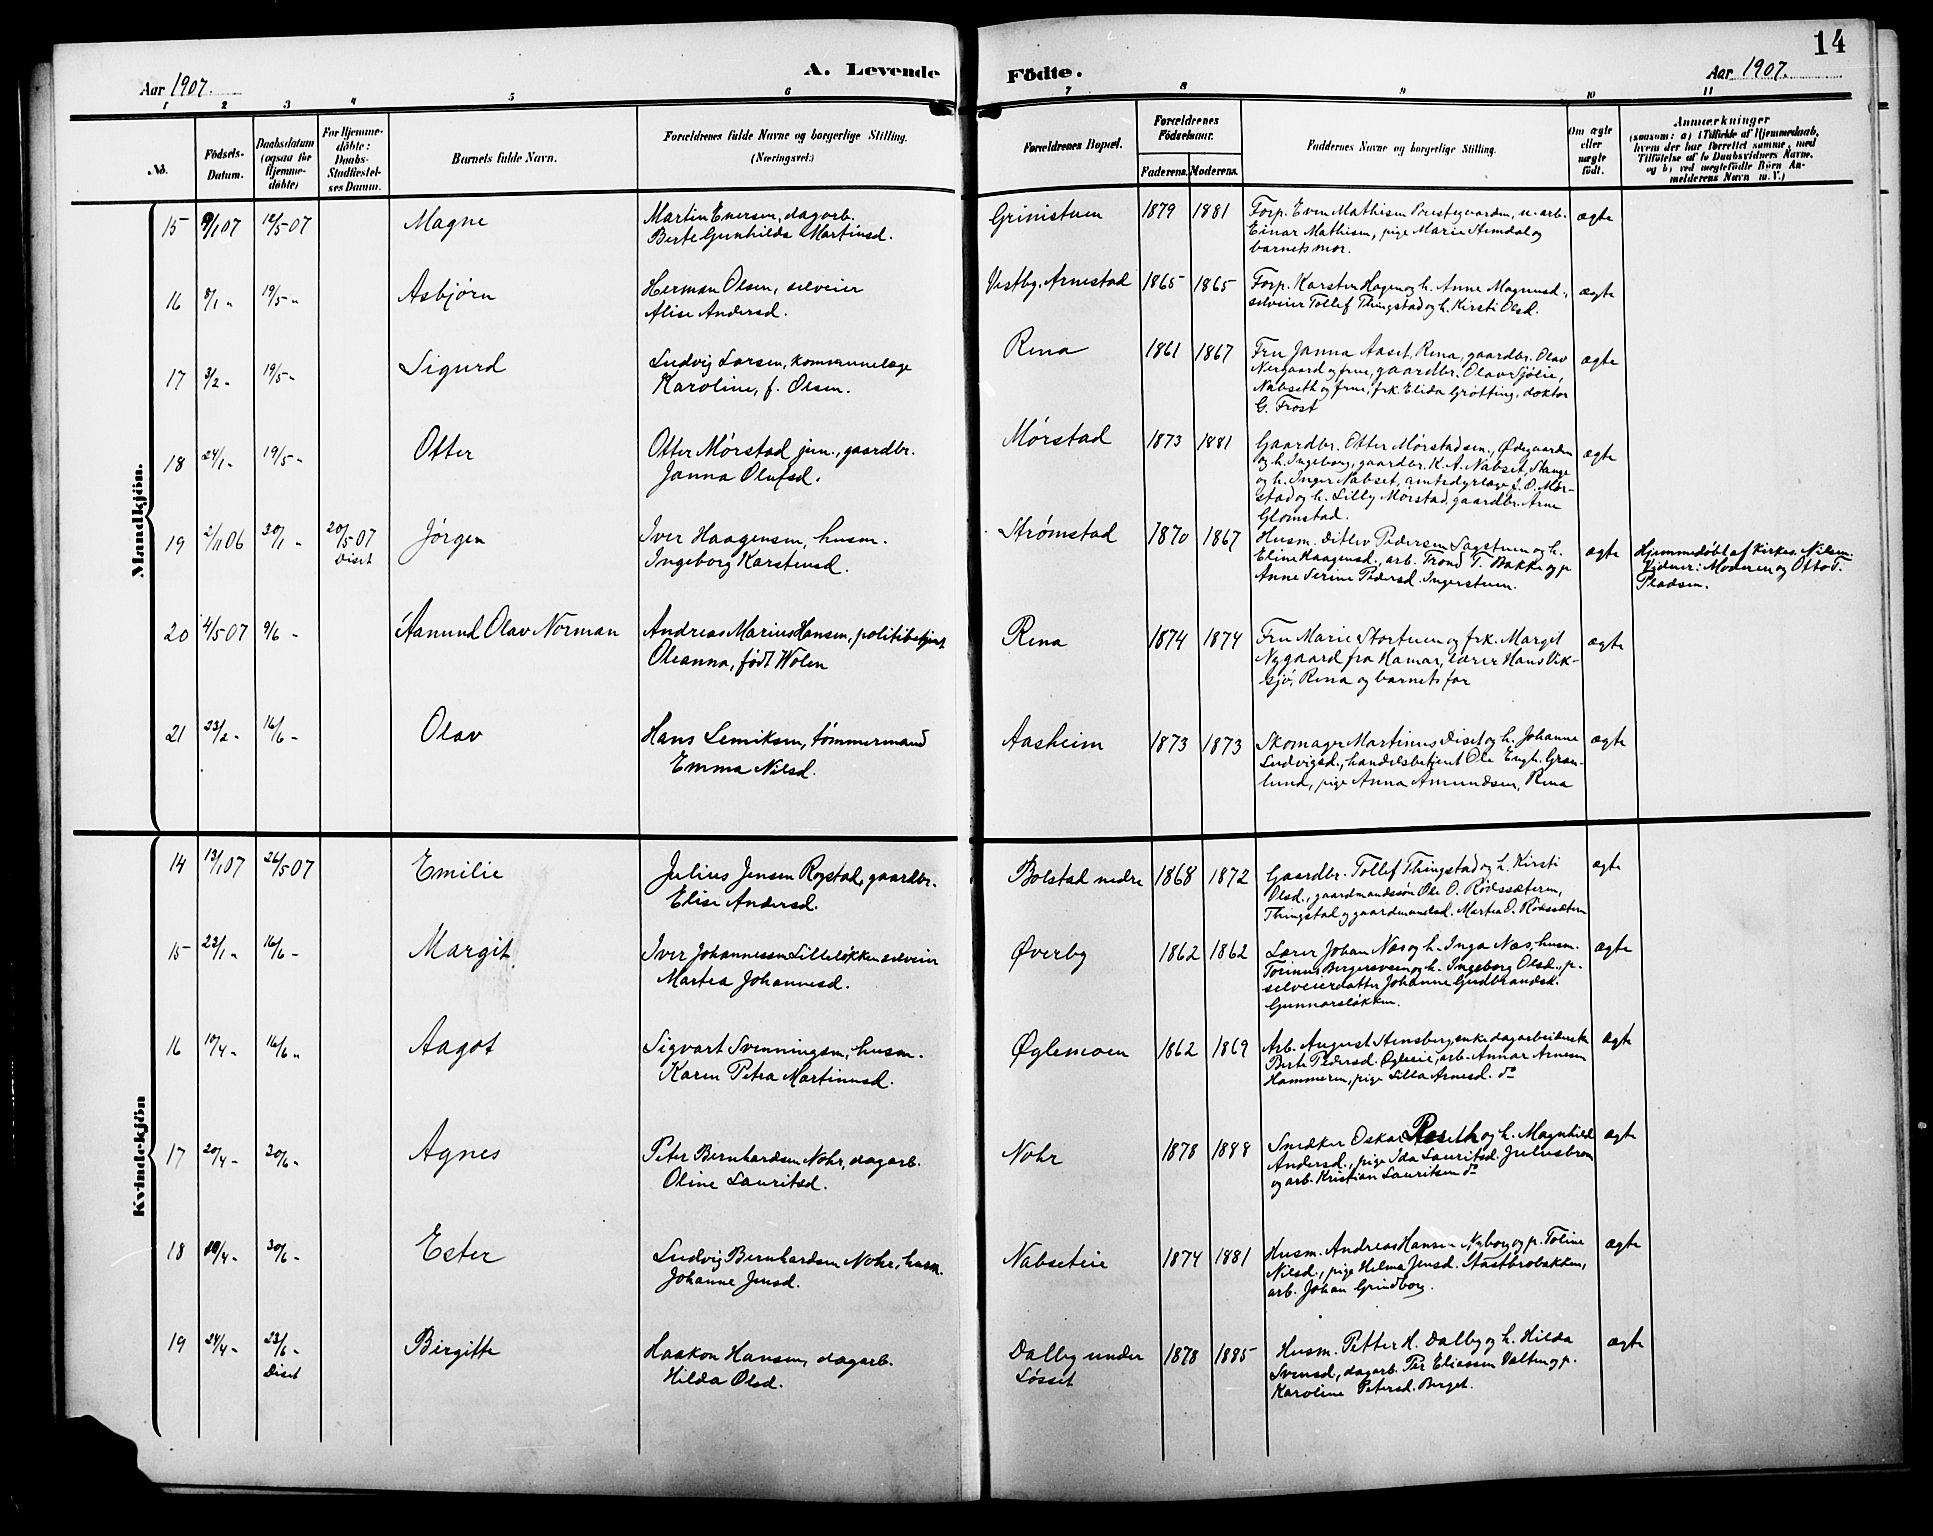 14
Aar 1907.
A. Levende
Födte.
Aar 1907.
1 2 3 4 5 6 7 8 9 10 11
No.
Födsels-
Datum.
Daabsdatum
(ogsaa for
Hjemme-
döbte)
For Hjemme-
döbte:
Daabs-
Stadfæstel-
ses Datum.
Barnets fulde Navn.
Forældrenes fulde Navne og borgerlige Stilling.
(Næringsvei.)
Forældrenes Bopæl.
Forældrenes
Födselsaar.
Faderens. Moderens.
Faddernes Navne og borgerlige Stilling.
Om ægte
eller
uægte
født.
Anmærkninger
(saasom: a) i Tilfælde af Hjemmedaab,
hvem der har forrettet samme, med
Tilföielse af to Daabsvidners Navne,
og b) ved uægtefödte Börn An-
melderens Navn m. V.)
Mandkjön.
15 9/1 07 12/5-07 Magne
Martin Enersen, dagarb.
Berte Gunhilda Martinsd.
Grinistuen 1879 1881
Forp. Even Mathisen Prestegaarden, u. arb.
Einar Mathisen, pige Marie Stemdal og
barnets mor.
ægte
16 8/1 " 19/5 " Asbjørn
Herman Olsen, selveier
Alise Andersd.
Vestby, Arnestad 1865 1865
Forp. Karsten Hagen og h. Anne Magnusd.,
selveier Tollef Thingstad og h. Kirsti Olsd.
ægte
17 3/2 - 19/5 - Sigurd
Ludvig Larsen, kommunelæge
Karoline, f. Olsen.
Rena 1861 1867
Fru Janna Aaset, Rena, gaardbr. Olav
Nergaard og frue, gaardbr. Olav Sjølie,
Nabseth og frue, frk. Elida Grøtting, doktor
G. Frost
ægte
18 24/1 - 19/5 - Otter
Otter Mørstad jun., gaardbr.
Janna Olufsd.
Mørstad 1873 1881
Gaardbr. Otter Mørstad sen., Ødegaarden
og h. Ingeborg, gaardbr. K. A. Nabset, Stange
og h. Inger Nabset, amtsdyrlæge J. O. Mør-
stad og h. Lilly Mørstad, gaardbr. Arne
Glomstad.
ægte
19 2/11 06 30/1 " 20/5 07
Diset
Jørgen
Iver Haagensen, husm.
Ingeborg Karstensd.
Strømstad 1870 1867
Husm. Ditlev Pedersen Sagstuen og h.
Eline Haagensd., arb. Trond T. Bakke og p.
Anne Serine Pedersd. Ingerstuen.
ægte
Hjemmedøbt af kirkes. Nilsen.
Vidner: Moderen og Otto T.
Pladsen.
20 4/5 07 9/6 - Aamund Olav Norman
Andreas Marius Hansen, politibetjent
Oleanna, født Wolen
Rena 1874 1874
Fru Marie Stortuen og frk. Marget
Nygaard fra Hamar, lærer Hans Vik-
sjø, Rena og barnets far
ægte
21 23/2 - 16/6 - Olav
Hans Lemiksen, tømmermand
Emma Nilsd.
Aasheim 1873 1873
Skomager Martinus Diset og h. Johanne
Ludvigsd., handelsbetjent Ole Engh. Gran-
lund, pige Anna Amundsen, Rena
ægte
Kvindekjön
14 13/1 07 26/5 07 Emilie
Julius Jensen Rogstad, gaardbr.
Elise Andersd.
Bolstad nedre 1868 1872
Gaardbr. Tollef Thingstad og h. Kirsti
Olsd., gaardmandssøn Ole O. Rødssæteren,
Thingstad og gaardmandsd. Martea O. Rødssæteren
ægte
15 22/1 - 16/6 - Margit
Iver Johannessen Lilleløkken selveier
Martea Johannesd.
Øverby 1862 1862
Lærer Johan Næs og h. Inga Næs, husm.
Torinus Bergersveen og h. Ingeborg Olsd., p.
selveierdatter Johanne Gudbrandsk.
Gunnarsløkken.
ægte
16 10/4 " 16/6 " Aagot
Sigvart Svenningsen, husm.
Karen Petra Martinusd.
Øglemoen 1862 1869
Arb. August Stensberg, enke dagarbeiderske
Berte Pedersd. Ögleeie, arb. Annar Arnesen
Hammeren, pige Lilla Arnesd. do
ægte
17 20/4 - 30/6 - Agnes
Peter Bernhardsen Nohr, dagarb.
Oline Lauritsd.
Nohr 1878 1888
Snedker Oskar Raseth og h. Magnhild
Andersd., pige Ida Lauritsd. Julusbroen
og arb. Kristian Lauritsen do
ægte
18 30/6 - Ester
Ludvig Bernhardsen Nohr, husm.
Johanne Jensd.
Nabseteie 1874 1881
Husm. Andreas Hansen Nyborg og p. Toline
Nilsd., pige Hilma Jensd. Stastbrobakken,
arb. Johan Grindborg.
ægte
19 24/4 - 23/6 -
Diset
Birgitte
Haakon Hansen, dagarb.
Hilda Olsd.
Dalby under
Løsset
1878 1885
Husm. Petter H. Dalby og h. Hilda
Svensd, dagarb. Per Eliassen Valten og p.
Karoline Petersd. Berget.
ægte